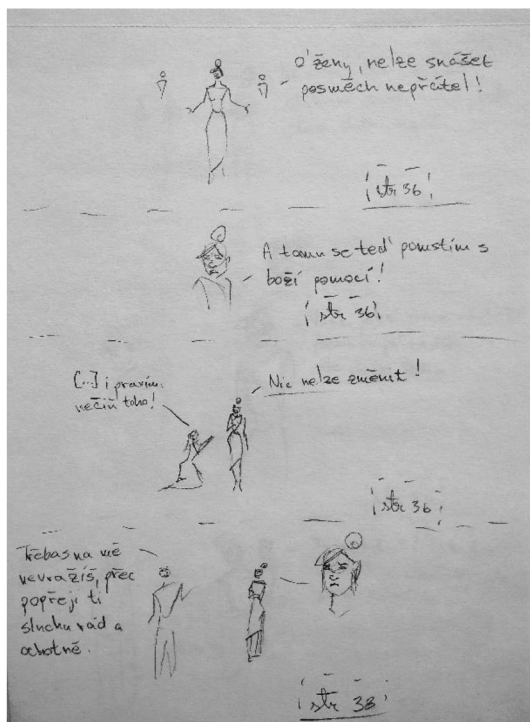 O' ženy, nelze snášet
posměch nepřátel!
str 36
A tomu se teď pomstím s
boží pomocí!
str 36
[...] i pravím:
nečiň toho!
Nic nelze změnit!
str 36
Třebas na mě
nevražíš, přec
popřeji ti
sluchu rád a
ochotně.
str 38